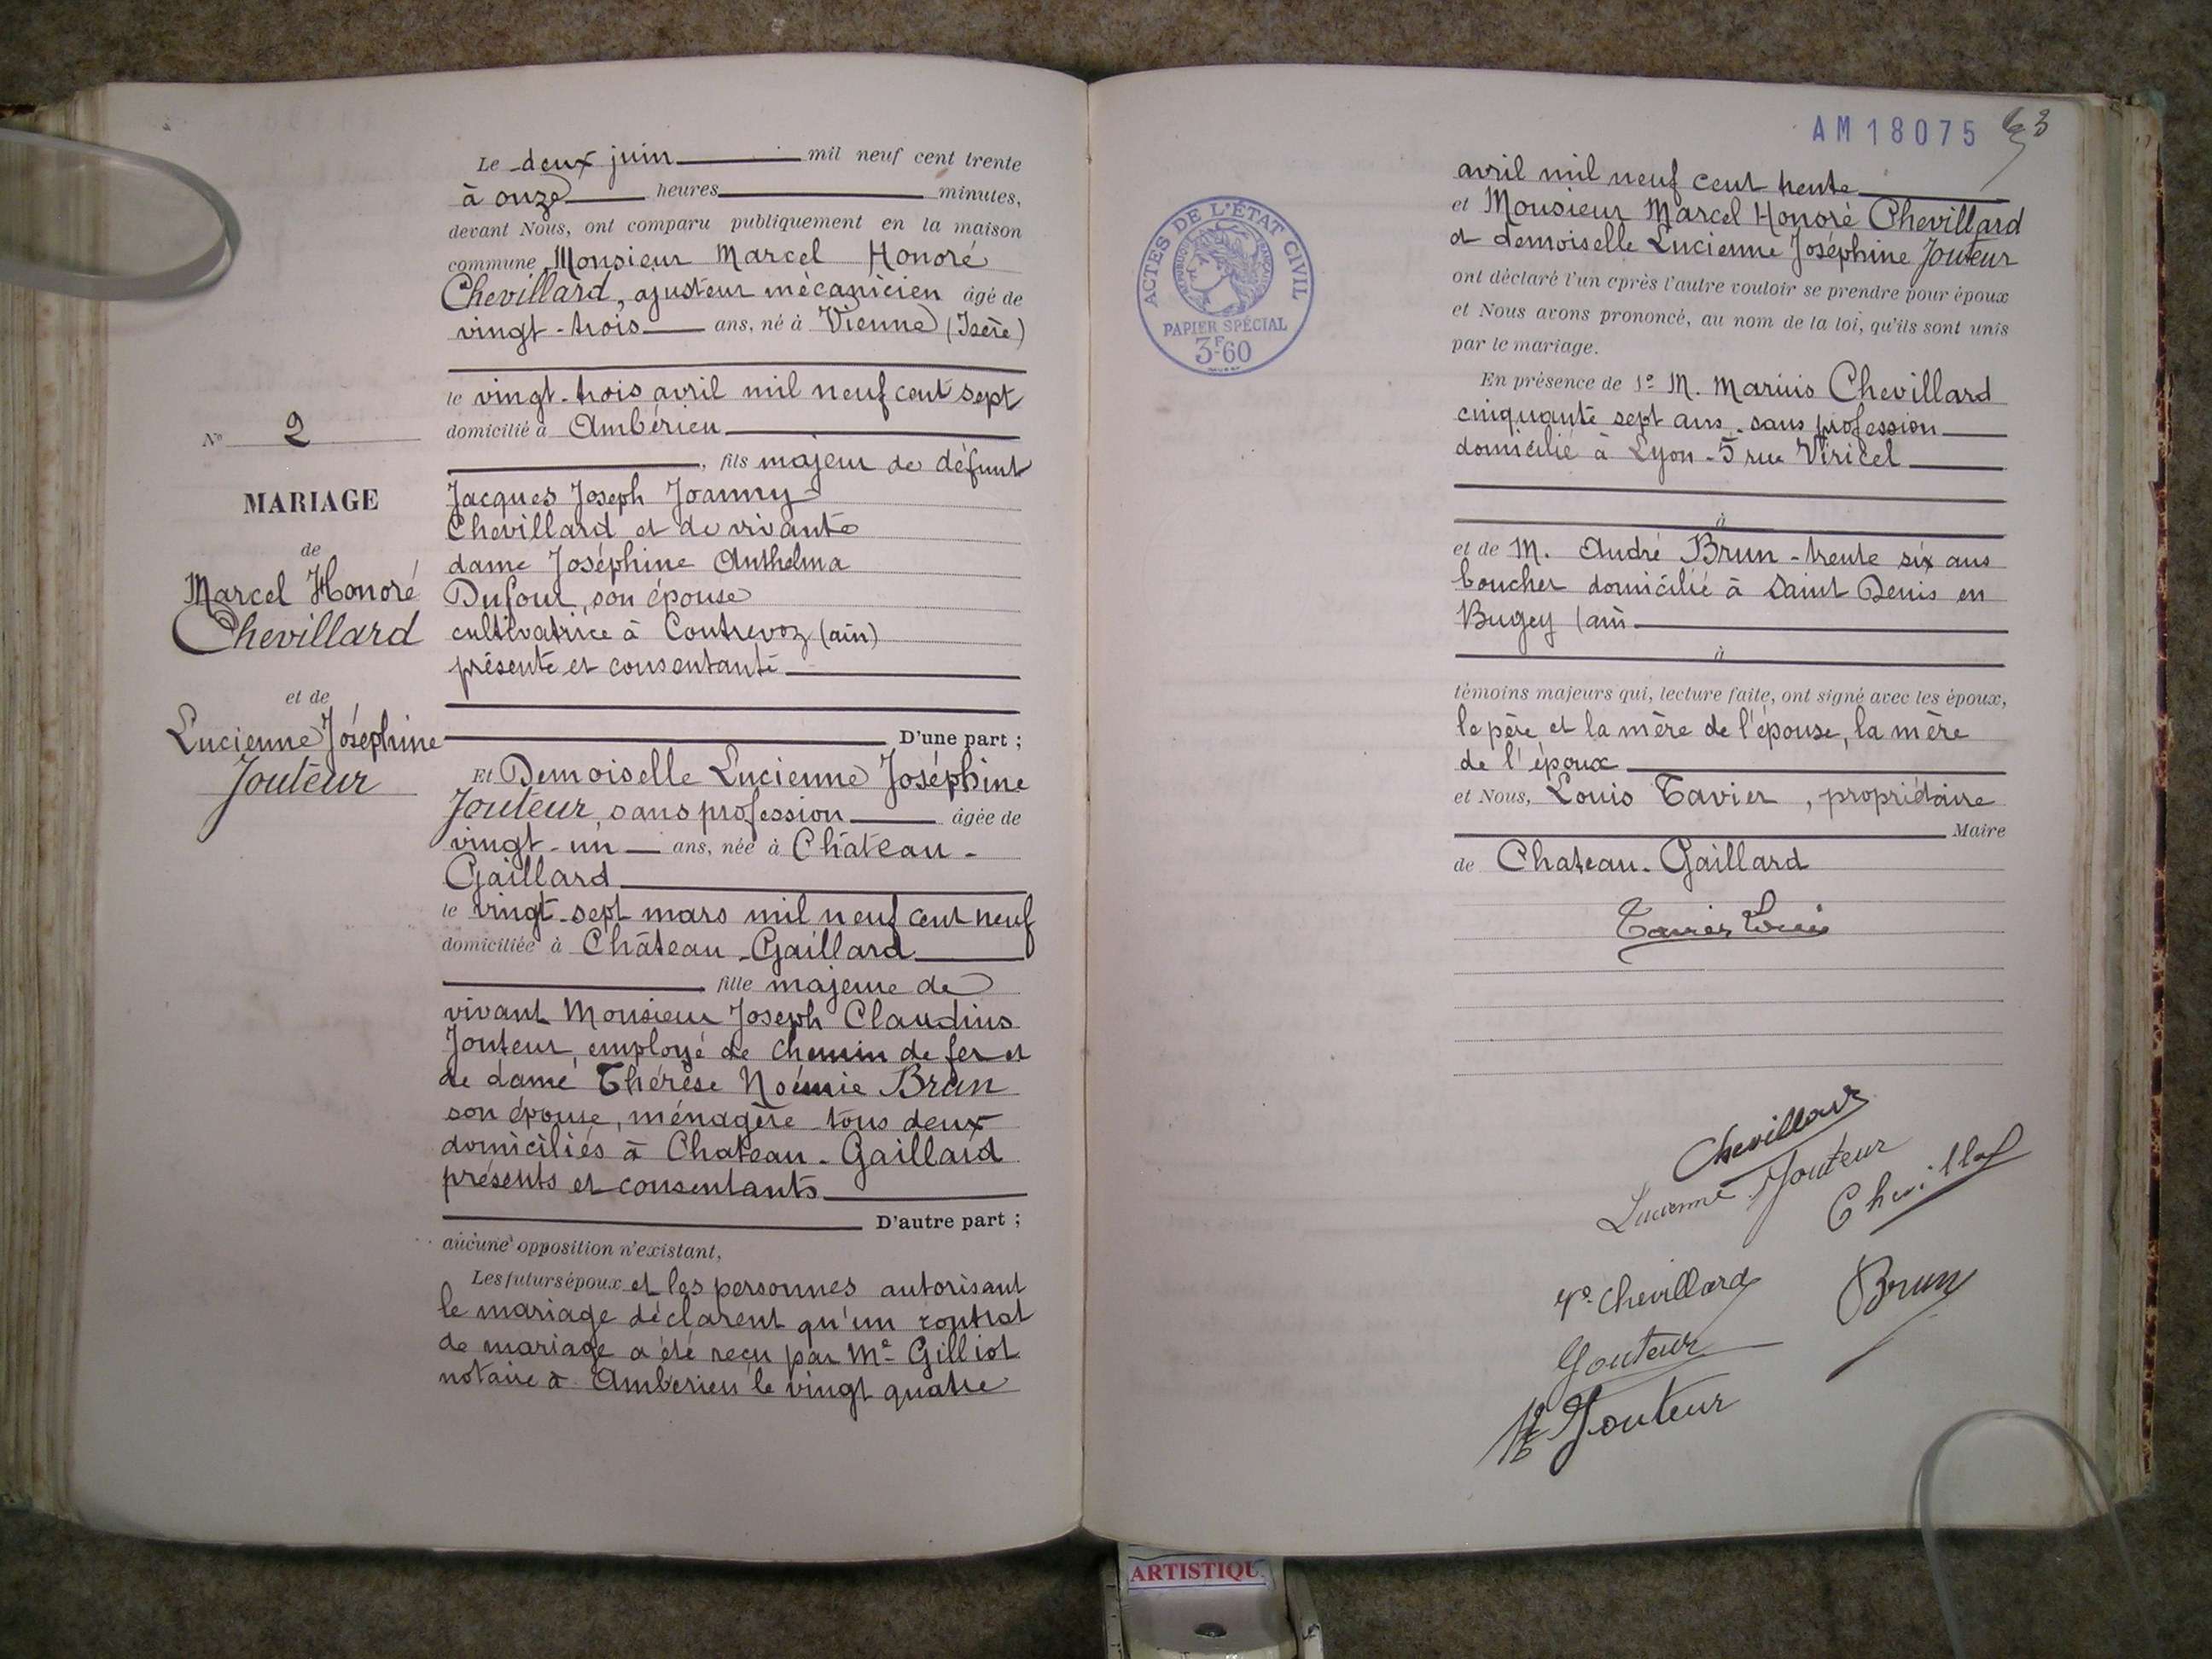 Le deux juin mil neuf cent trente
à onze heures minutes,
devant Nous, ont comparu publiquement en la maison
commune, Monsieur Marcel Honoré
Chevillard, ajusteur mécanicien âgé de
vingt-trois ans, né à Vienne (Isère)
le vingt-trois avril mil neuf cent sept
domicilié à Ambérieu
, fils majeur de défunt
Jacques Joseph Joanny
Chevillard et de vivante
dame Joséphine Anthelma
Dufour, son épouse
cultivatrice à Contrevoz (ain)
présente et consentante
D'une part ;
N° 2
MARIAGE
de
Marcel Honoré
Chevillard
et de
Lucienne Joséphine
Jouteur
Et Demoiselle Lucienne Joséphine
Jouteur, sans profession âgée de
vingt-un ans, née à Château-
Gaillard
le vingt-sept mars mil neuf cent neuf
domiciliée à Château-Gaillard
fille majeure de
vivant Monsieur Joseph Claudius
Jouteur, employé de chemin de fer et
de dame Thérèse Noémie Brun
son épouse, ménagère tous deux
domiciliés à Chateau-Gaillard
présents et consentants
D'autre part ;
aucune opposition n'existant,
Les futurs époux et les personnes autorisant
le mariage déclarent qu'un contrat
de mariage a été reçu par Me Gilliot
notaire à Ambérieu le vingt quatre
AM 18075
ACTES DE L'ÉTAT CIVIL
RÉPUBLIQUE FRANÇAISE
PAPIER SPÉCIAL
3F60
avril mil neuf cent trente
et Monsieur Marcel Honoré Chevillard
et demoiselle Lucienne Joséphine Jouteur
ont déclaré l'un après l'autre vouloir se prendre pour époux
et Nous avons prononcé, au nom de la loi, qu'ils sont unis
par le mariage.
En présence de 1° M. Marius Chevillard
cinquante sept ans, sans profession
domicilié à Lyon-5 rue Viricel
à
et de M. André Brun - trente six ans
boucher domicilié à Saint Denis en
Bugey (ain
à
témoins majeurs qui, lecture faite, ont signé avec les époux,
le père et la mère de l'épouse, la mère
de l'époux
et Nous, Louis Tavier, propriétaire
Maire
de Chateau-Gaillard
Tavier Louis
Chevillard
Lucienne Jouteur
Chevillard
Ve Chevillard
Brun
Jouteur
Jouteur
ARTISTIQU